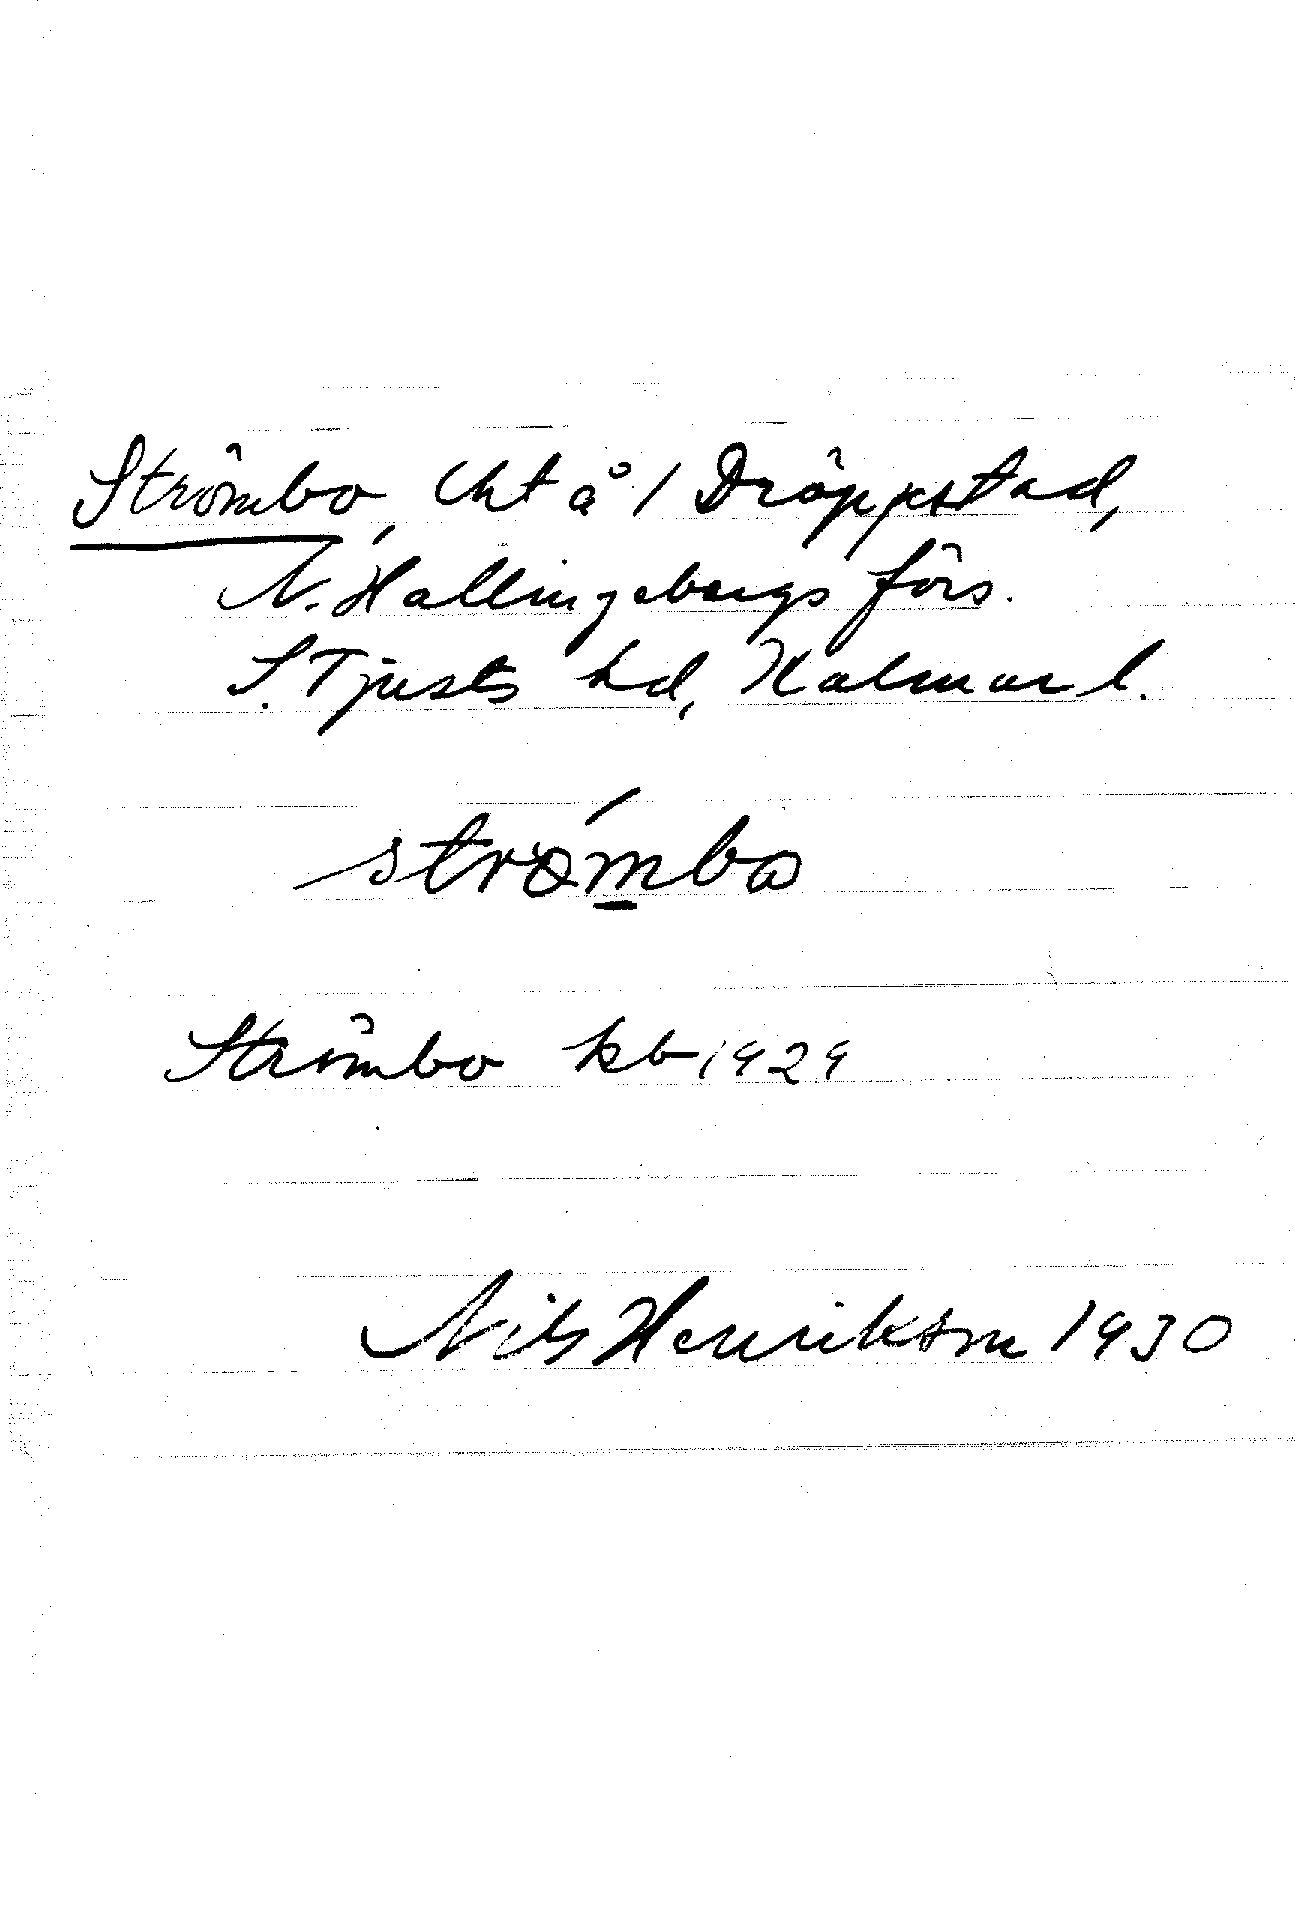 Strömbo, lht å 1 Dröppstad,
N. Hallingebergs förs.
S. Tjusts hd, Kalmar l.
strømbo
Strömbo kb 1929
Nils Henrikson 1930